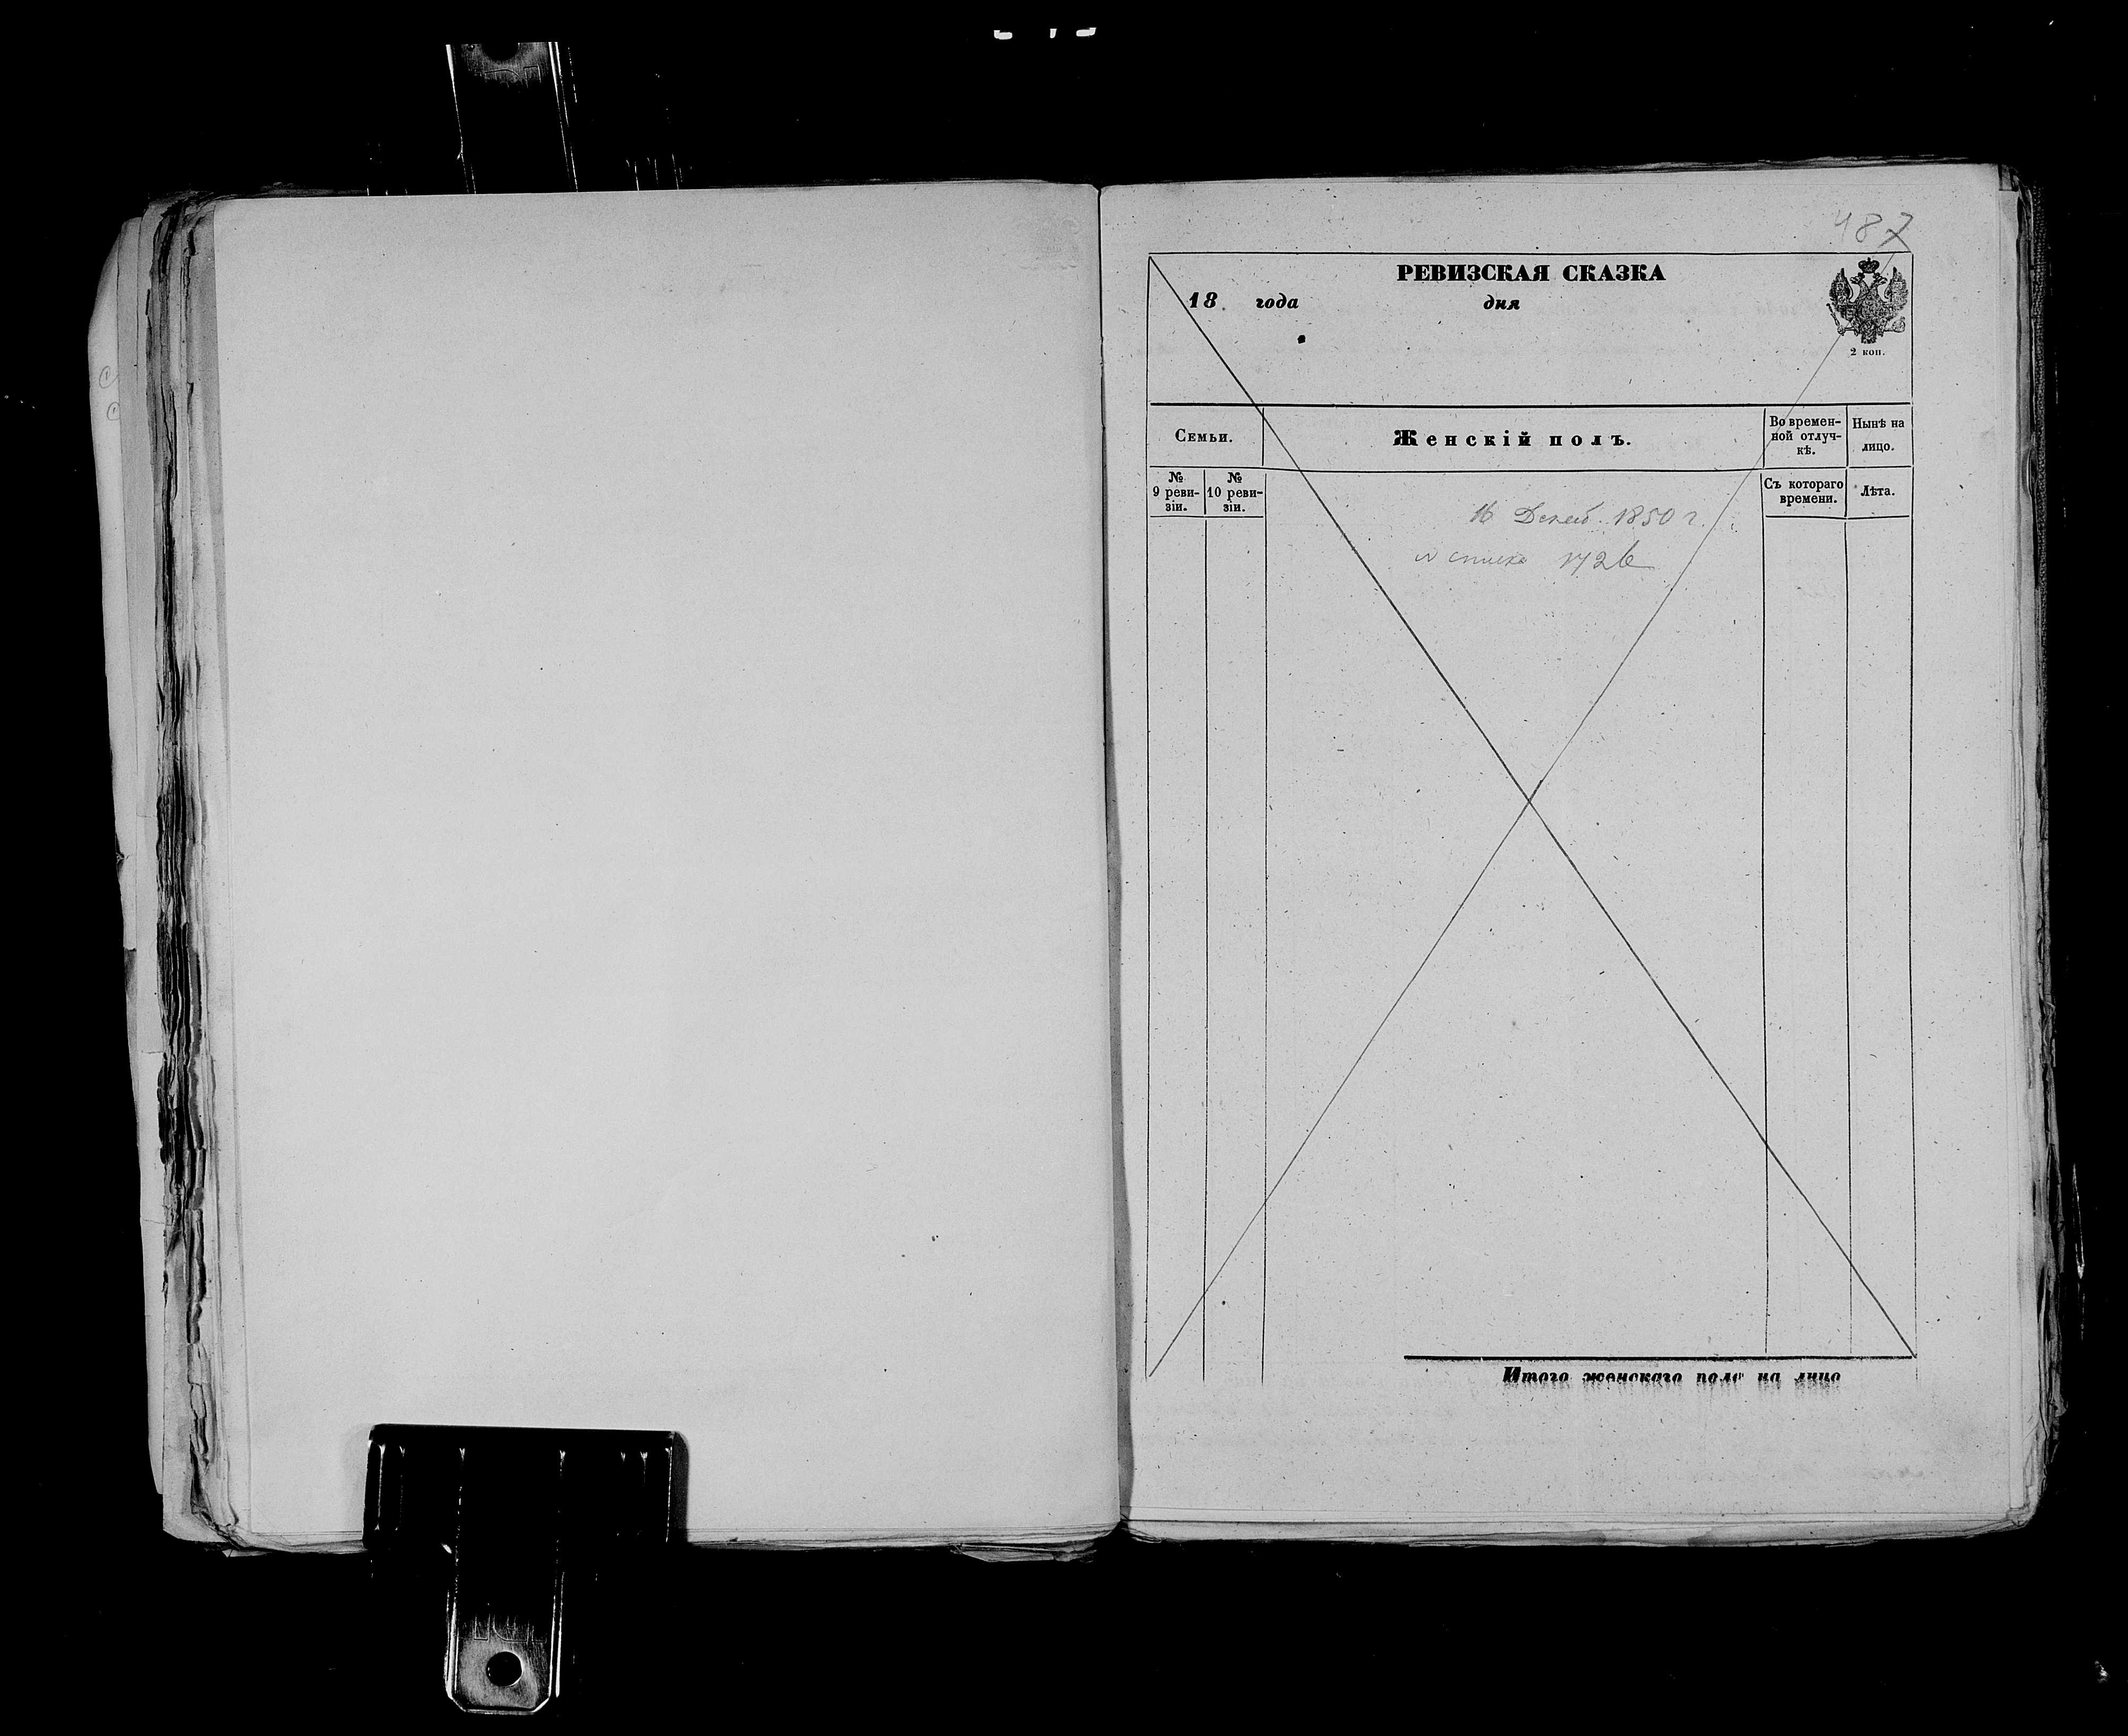 487
РЕВИЗСКАЯ СКАЗКА
18 года дня
2 коп.
Семьи. Женскій полъ. Во времен-ной отлуч-кѣ. Нынѣ на лицо.
№ 9 реви-зіи. № 10 реви-зіи. Съ котораго времени. Лѣта.
16 Декаб. 1850 г.
Итого женскаго пола на лицо